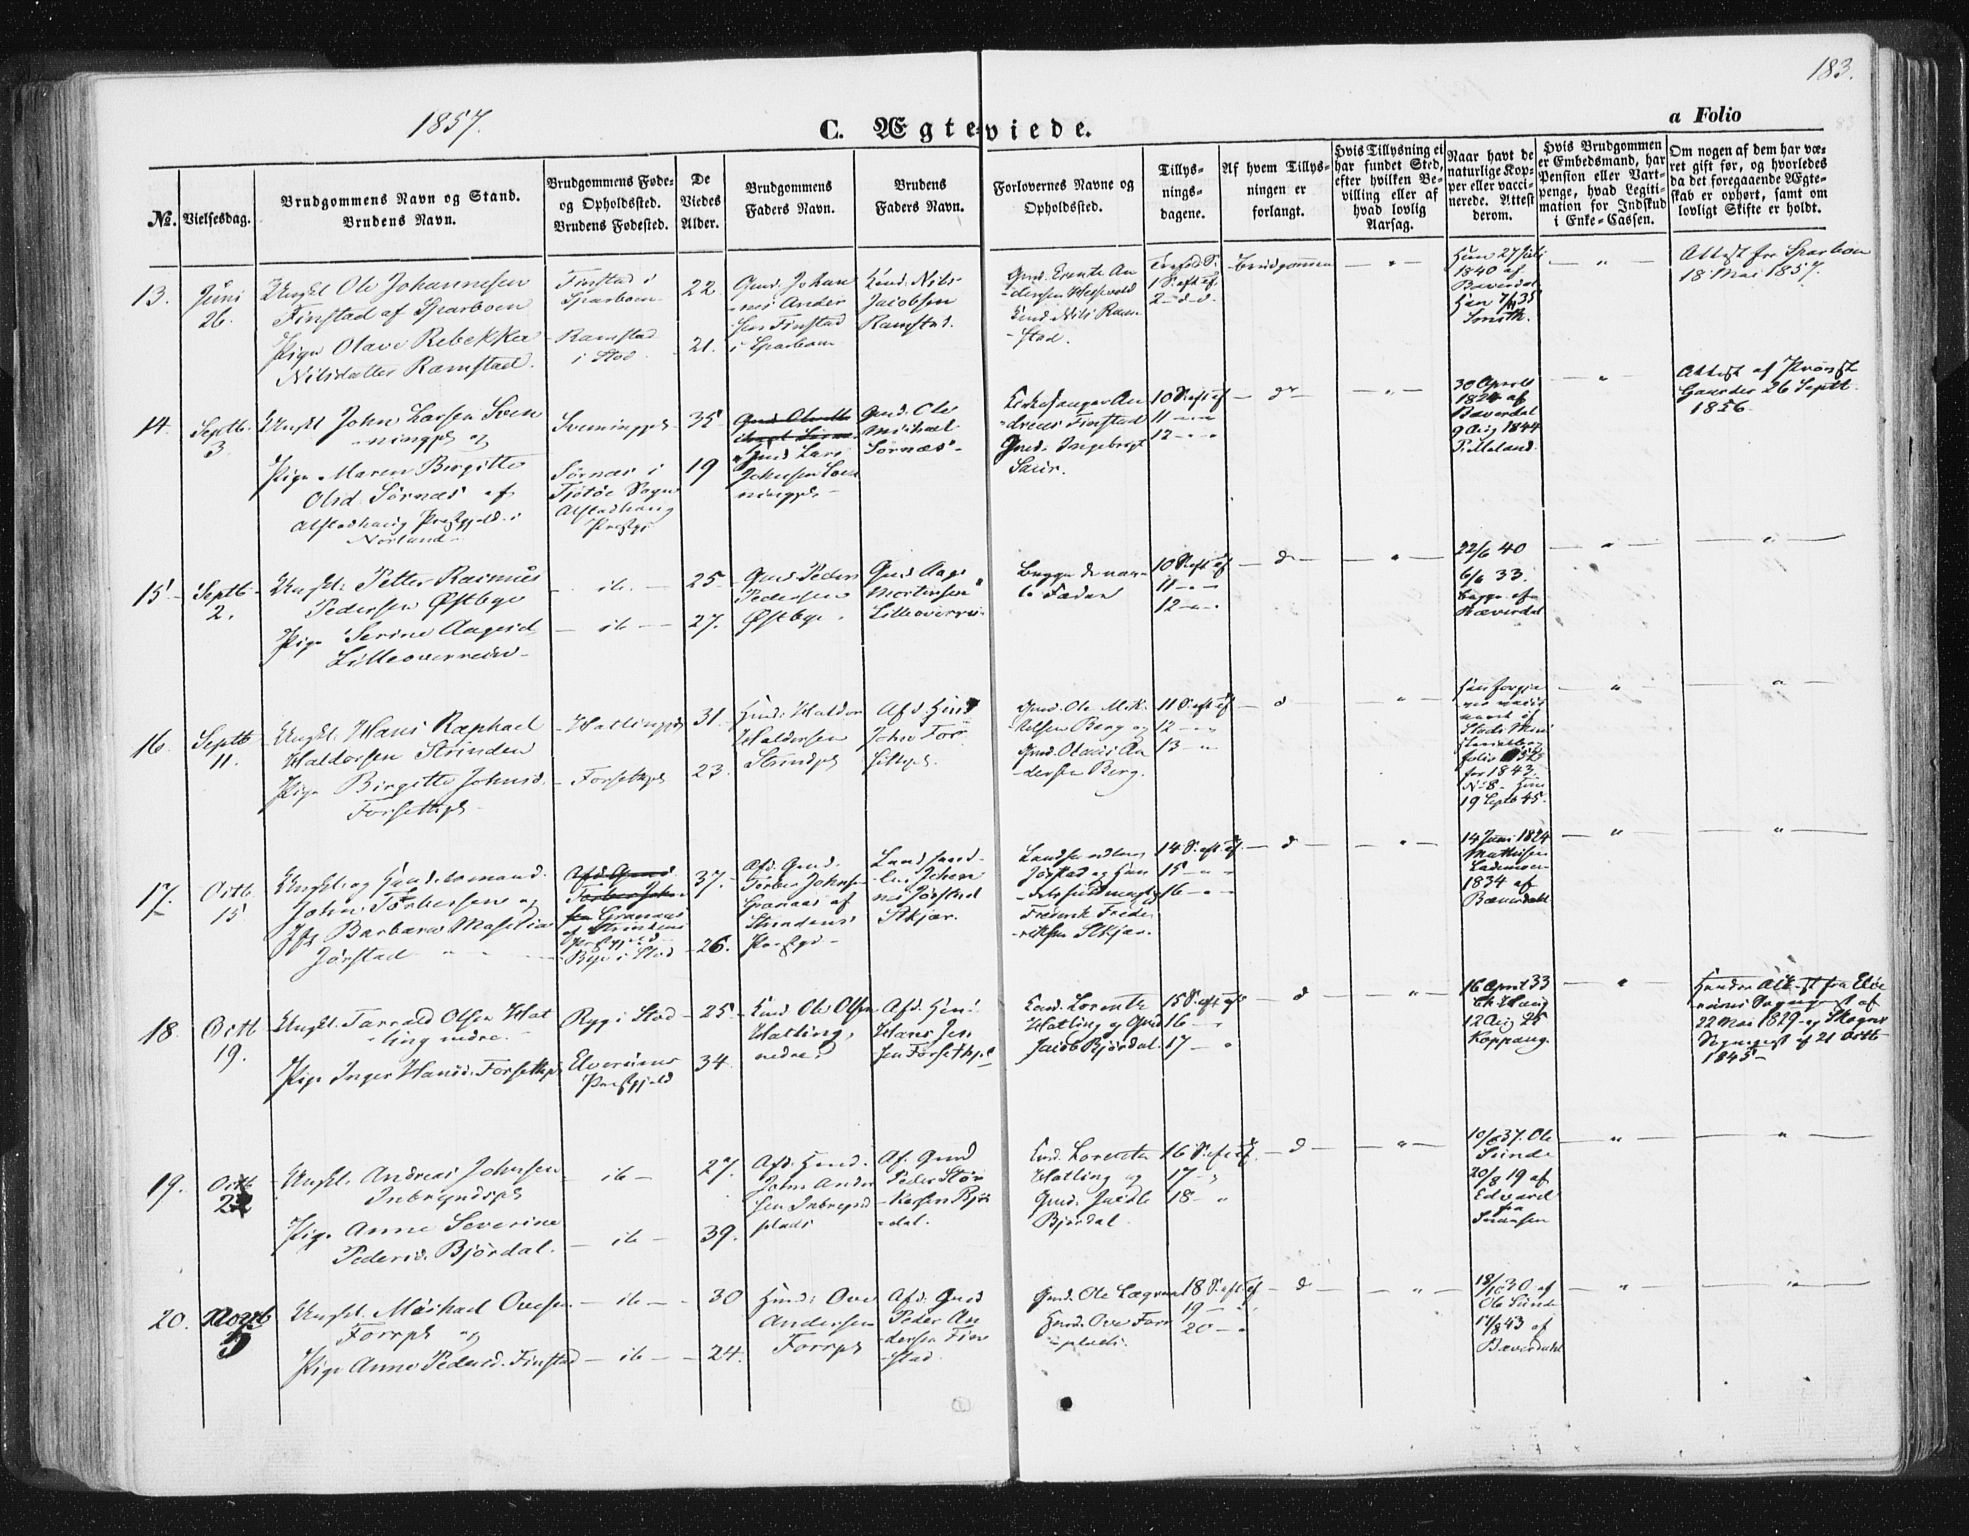 183.
1857.
C. Ægteviede.
a Folio
№.
Vielsesdag.
Brudgommens Navn og Stand.
Brudens Navn.
Brudgommens Føde-
og Opholdssted.
Brudens Fødested.
De
Viedes
Alder.
Brudgommens
Faders Navn.
Brudens
Faders Navn.
Forlovernes Navne og
Opholdssted.
Tillys-
nings-
dagene.
Af hvem Tillys-
ningen er
forlangt.
Hvis Tillysning ei
har fundet Sted,
efter hvilken Be-
villing eller af
hvad lovlig
Aarsag.
Naar havt de
naturlige Kop-
per eller vacci-
nerede. Attest
derom.
Hvis Brudgommen
er Embedsmand, har
Pension eller Vart-
penge, hvad Legiti-
mation for Indskud
i Enke-Cassen.
Om nogen af dem har væ-
ret gift før, og hvorledes
da det foregaaende Ægte-
skab er ophørt, samt om
lovligt Skifte er holdt.
13.
Juni
26.
Ungkl Ole Johannesen
Finstad af Sparboen
Pige Olave Rebekka
Nilsdatter Ramstad.
Finstad i
Sparboen
Ramstad
i Stod.
22
21.
Gmd. Johan
nes Ander
sen Finstad
i Sparboen
Nils
Jacobsen
Ramstad.
Gmd. Erente An
dersen
Nils Ram
stad.
Brudgommen
Hun 27 Juli
1840 af
Bæverdal
Smith.
Attest fra Sparboen
18 Mai 1857.
14.
Septb.
3.
Ungkl John Larsen Sven
ningpl. og
Pige Maren Birgitte
Olsd Sørnæs af
Alstadhaug Præstgjeld i
Norland
Svenningpl.
Sørnæs i
Tjøtøe Sogn
Alstadhaug
Præstgj
35
19
Gmd Lars
Johnsen Sven
ningpl
Gmd. Ole
Michal
Sørnæs
Kirkesanger An
dreas Finstad
Gmd. Ingebrigt
10 S. eft Tf
11 - -
12 - -
30 April
1824 af
Bæverdal
9 Aug 1844
Attest af Provst
26 Septb.
1856.
15
Septb
2.
Ungkl. Petter Rasmus
Pedersen Østbye
Pige Serine Aagesd
Lilleoverrein
ib
ib
25
27.
Gmd Peder
Pedersen
Østbye.
Gmd Aage
Mortensen
Lilleoverrein
Begge de nævn
te Fædre
10 S. eft Tf
11 - -
12 - -
d
22/6 40
6/6 33.
begge af
Bæverdal
16.
Septb
11.
Ungkl. Hans Raphael
Haldorsen Strinden
Pige Birgitte Johnsd.
Forsethpl
Hatlingpl
Forsethpl
31.
23.
Haldor
Haldorsen
Strindpl
Afd.
John For
sethpl.
Gmd. Ole Mik
kelsen Berg og
Gmd. Olaus An
dersen Berg.
11 S. eft Tf
12 - -
13 - -
d
for 1843.
No 8. Hun
19 Septb 45.
17.
Octb.
15
Ungkl. og Handelsmand
John Torbersen og
Jfr Barbara Maselia
Jørstad
Afd Gmd
Torber John
sen Granaas
af Strindens
Præstgjeld
Bye i Stod
37.
26.
Afd. Gmd.
Torber Johnsen
Granaas af
Strindens
Præstgj.
Landhand-
ler Johan
Jørstad
Stkjær.
Landhandler
Jørstad og Han
delsfuldmægtig
Frederik Frede
riksen Stkjær.
14 S. eft Tf.
15 - -
16 - -
d
14 Juni 1824
Mathisen
Lademoen
1834 af
Bæverdahl
18.
Octb
19.
Ungkl. Tarrald Olsen Hat
ling nedre.
Pige Inger Hansd. Forsethpl
Ryg i Stod
Elverums
Præstgjeld
25
34.
Ole Olsen
Hatling
nedre.
Afd.
Hans Jen
sen Forsethpl
Lorents
Hatling og Gmd
Jacob Bjørdal.
15 S. eft Tf
16 -
17 -
d
16 April 33
12 Aug 25
Koppang.
Hendes Attest fra Elve
rums Sognepræst af
22 Mai 1829 og Skogns
Sognepræst af 21 Octb
1845
19.
Octb
22
Ungkl. Andreas Johnsen
Inbryndspl
Pige Anne Severine
Pedersd. Bjørdal.
ib
ib
27.
39.
Afd.
John Ander
sen Inbrynd
plads
Af. Gmd
Peder Stør
kersen Bjør
dal.
Lorents
Hatling og
Gmd. Jacob
Bjørdal.
16 S. eft Tf.
17 -
18 -
d
10/8 37. Ole
Sunde
20/8 19 af
Edvard
Svensen
20.
Novb
5
Ungkl. Michael Ovesen
Forrpl og
Pige Anne Pedersd. Finstad
ib
ib
30
24.
Ove
Andersen
Forrpl
Afd. Gmd
Peder An
dersen Fin
stad.
Gmd. Ole Lægran
Ove Forr
plads.
18 S. eft Tf
19 -
20 -
d
18/10 30 af
Ole Sunde
17/8 43 af
Bæverdahl